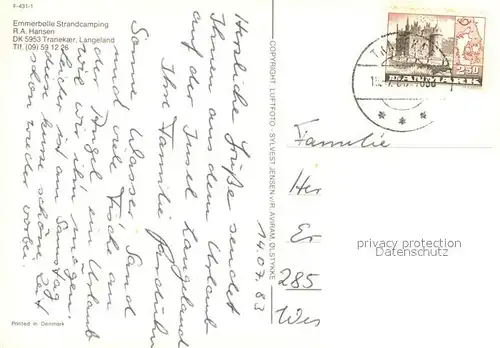 F-431-1
Emmerbølle Strandcamping
R.A. Hansen
DK 5953 Tranekær, Langeland
Tlf. (09) 59 12 26
Herzliche Grüße sendet
Ihnen aus dem Urlaub
auf der Insel Langeland
Ihre Familie
Sonne, Wasser, Sand
und viele Fische an
der Angel, ein Urlaub
wie wir ihn mögen.
Leider ist am Samstag
diese kurze schöne Zeit
schon wieder vorbei.
14.07.83
Printed in Denmark
COPYRIGHT LUFTFOTO - SYLVEST JENSEN v/R. AVIRAM, ØLSTYKKE
DANMARK
250
Familie
Her
Er
285
Wes
privacy protection
Datenschutz